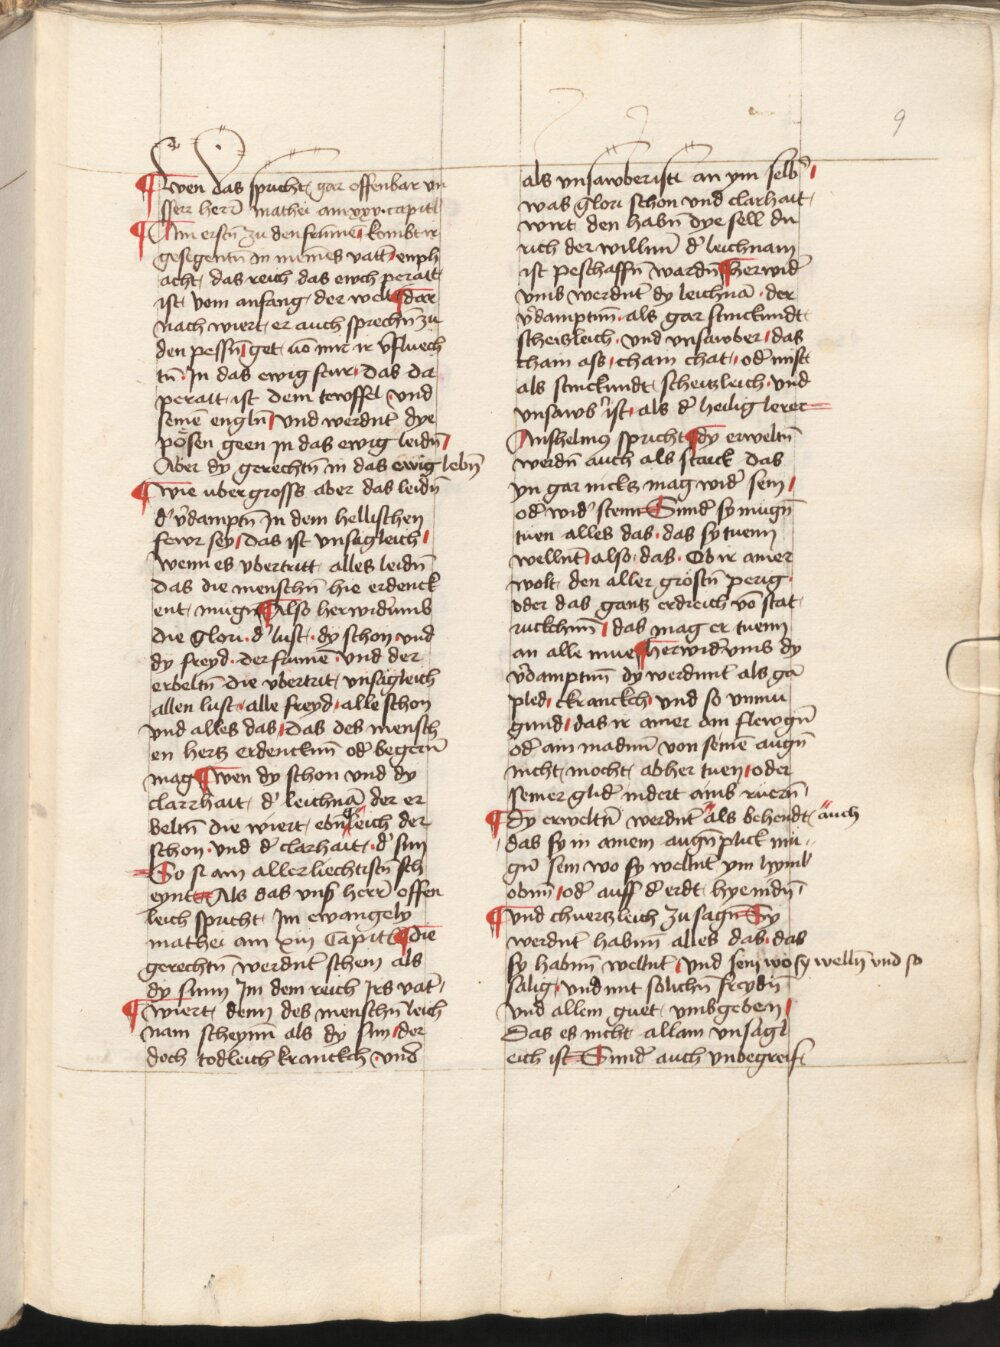 9
Wen das spricht gar offenbar vn
sser herr̄ mathei am xxv capitl
Am erstn̄ zu den frūmē kombt ir
gesegentn̄ in meines vatt̄ enph
acht das reich das ewch perait
ist vom anfang der welt dar
nach wiert er auch sprechn̄ zu
den pessn̄ get vō mir ir v̄fluech
tn̄ In das ewig feur das da
perait ist dem tewffel vnd
seinē engln̄ vnd werdnt̄ dye
pösen geen In das ewig leidn̄
Aber dy gerechtn̄ in das ewig lebn̄
Wie vbergrosss aber das leidn̄
d̄ v̄damptn̄ In dem hellischen
fewr sey das ist vnsagleich
wenn es vbertritt alles leidn̄
das die menschn̄ hie erdenck
ent mugn̄ Also herwiderumb
die glori d̄ lust dy schon vnd
dy freyd der frumē vnd der
erbeltn̄ die vbertrit vnsagleich
allen lust alle freyd alle schon
vnd alles das das des mensch
en hertz erdenckn̄ od̄ begern̄
mag Wen dy schon vnd dy
clarrhait d̄ leichnā der er
beltn̄ die wiert ebngleich der
schon vnd d̄ clarhait d̄ sun
So si am aller liechtistn̄ sch
eynt Als das vnß herr̄ offen
leich spricht Im ewangely
mathei am xiij Capitl die
gerechtn̄ werdnt̄ schein als
dy sunn Im dem reich Irs vat̄
Wiert denn des menschn̄ leich
nam scheynn̄ als dy sun der
doch todleich kranckch vnd̄
als vnsawberisti an ym selb̄
was glori schon vnd clarhait
wirt den habn̄ dye sell du
rich der willnn̄ d̄ leichnam
ist peschaffn̄ wardn̄ herwid̄
vmb werdnt̄ dy leichnā der
v̄damptnn̄ als gar stinckundt
scheitzleich vnd vnsawber das
cham ass cham chat od̄ mist
als stinckundt scheitzleich vnd
vnsawb̄ ist als d̄ heilig lerer
Anshelmus spricht dy erweltn̄
werdn̄ auch als starck das
yn gar nicks mag wid̄ sein
od̄ wid̄ stenn Sund̄ sy mugn̄
tuen alles das das sy tuenn
wellnt̄ also das Ob ir ainer
wolt den aller gröstn̄ perig
oder das gantz erdreich vō stat
ruckchnn̄ das mag er tuenn
an alle mue herwid̄vmb dy
v̄damptnn̄ dy werdunt̄ als gā
pled ckranckch vnd so vnmu
gund das ir ainer ain flewgn̄
od̄ ain madnn̄ von seinē augn̄
nicht mocht abher tuen oder
seiner glid̄ indert ains ruern̄
Dy erweltn̄ werdnt̄ als behendt auch
das sy in ainem augn̄plick mu
gn̄ sein wo sy wellnt̄ ym hyml
obnn̄ od̄ auff d̄ erdt hyenidn̄
Vnd churtzleich zu sagn̄ Sy
werdnt̄ habnn̄ alles das das
sy habnn̄ wellnt̄ vnd sein wo sy welln̄ vnd so
salig vnd mit solichn̄ freydn̄
vnd allem guet vmbgeben
Das es nicht allain vnsagl
eich ist Sund̄ auch vnbegreiff